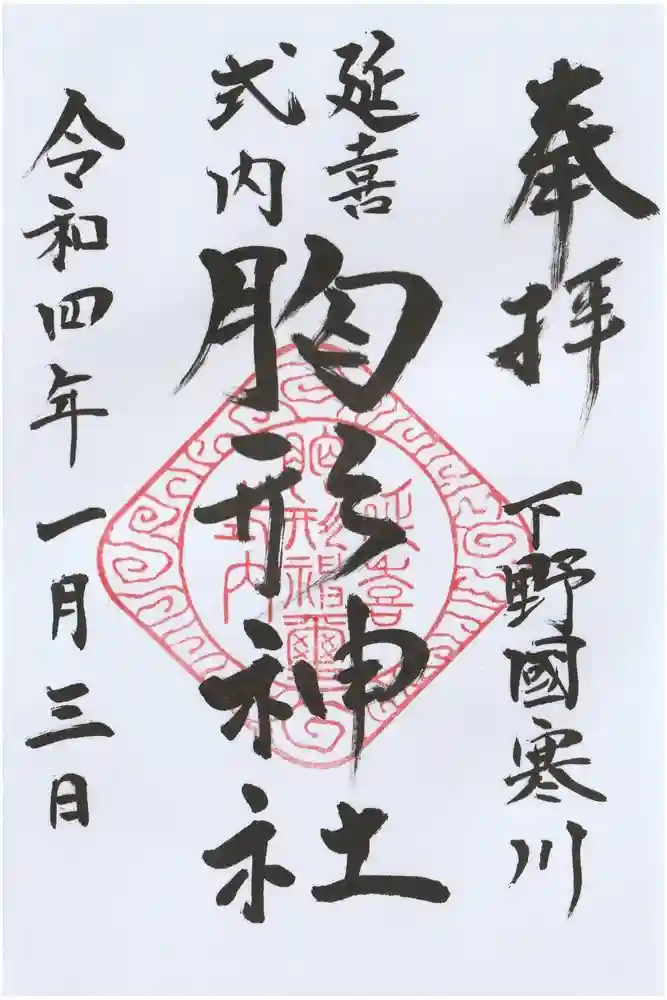 奉拝
下野國寒川
延喜
式内
胸形神社
延喜
胸形神璽
式内
令和四年一月三日